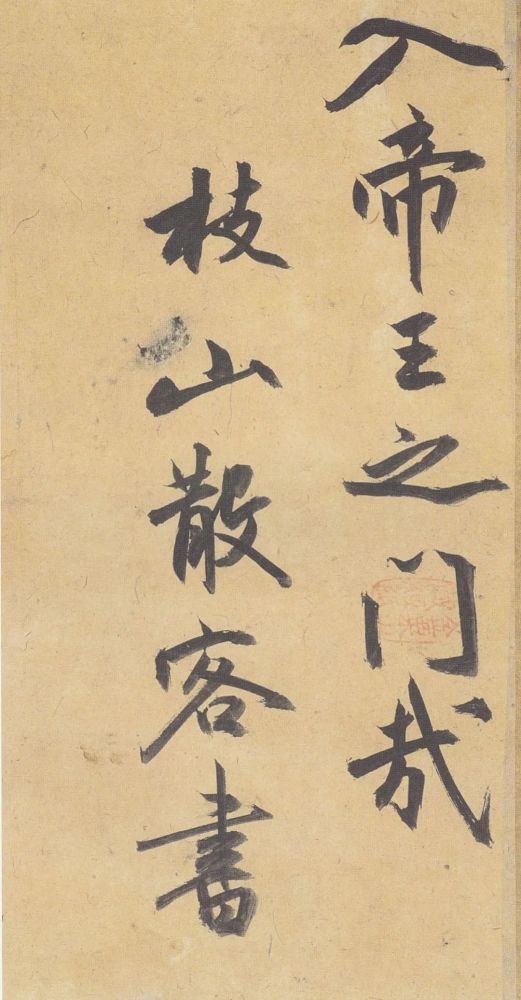 入帝王之门哉
枝山散客書